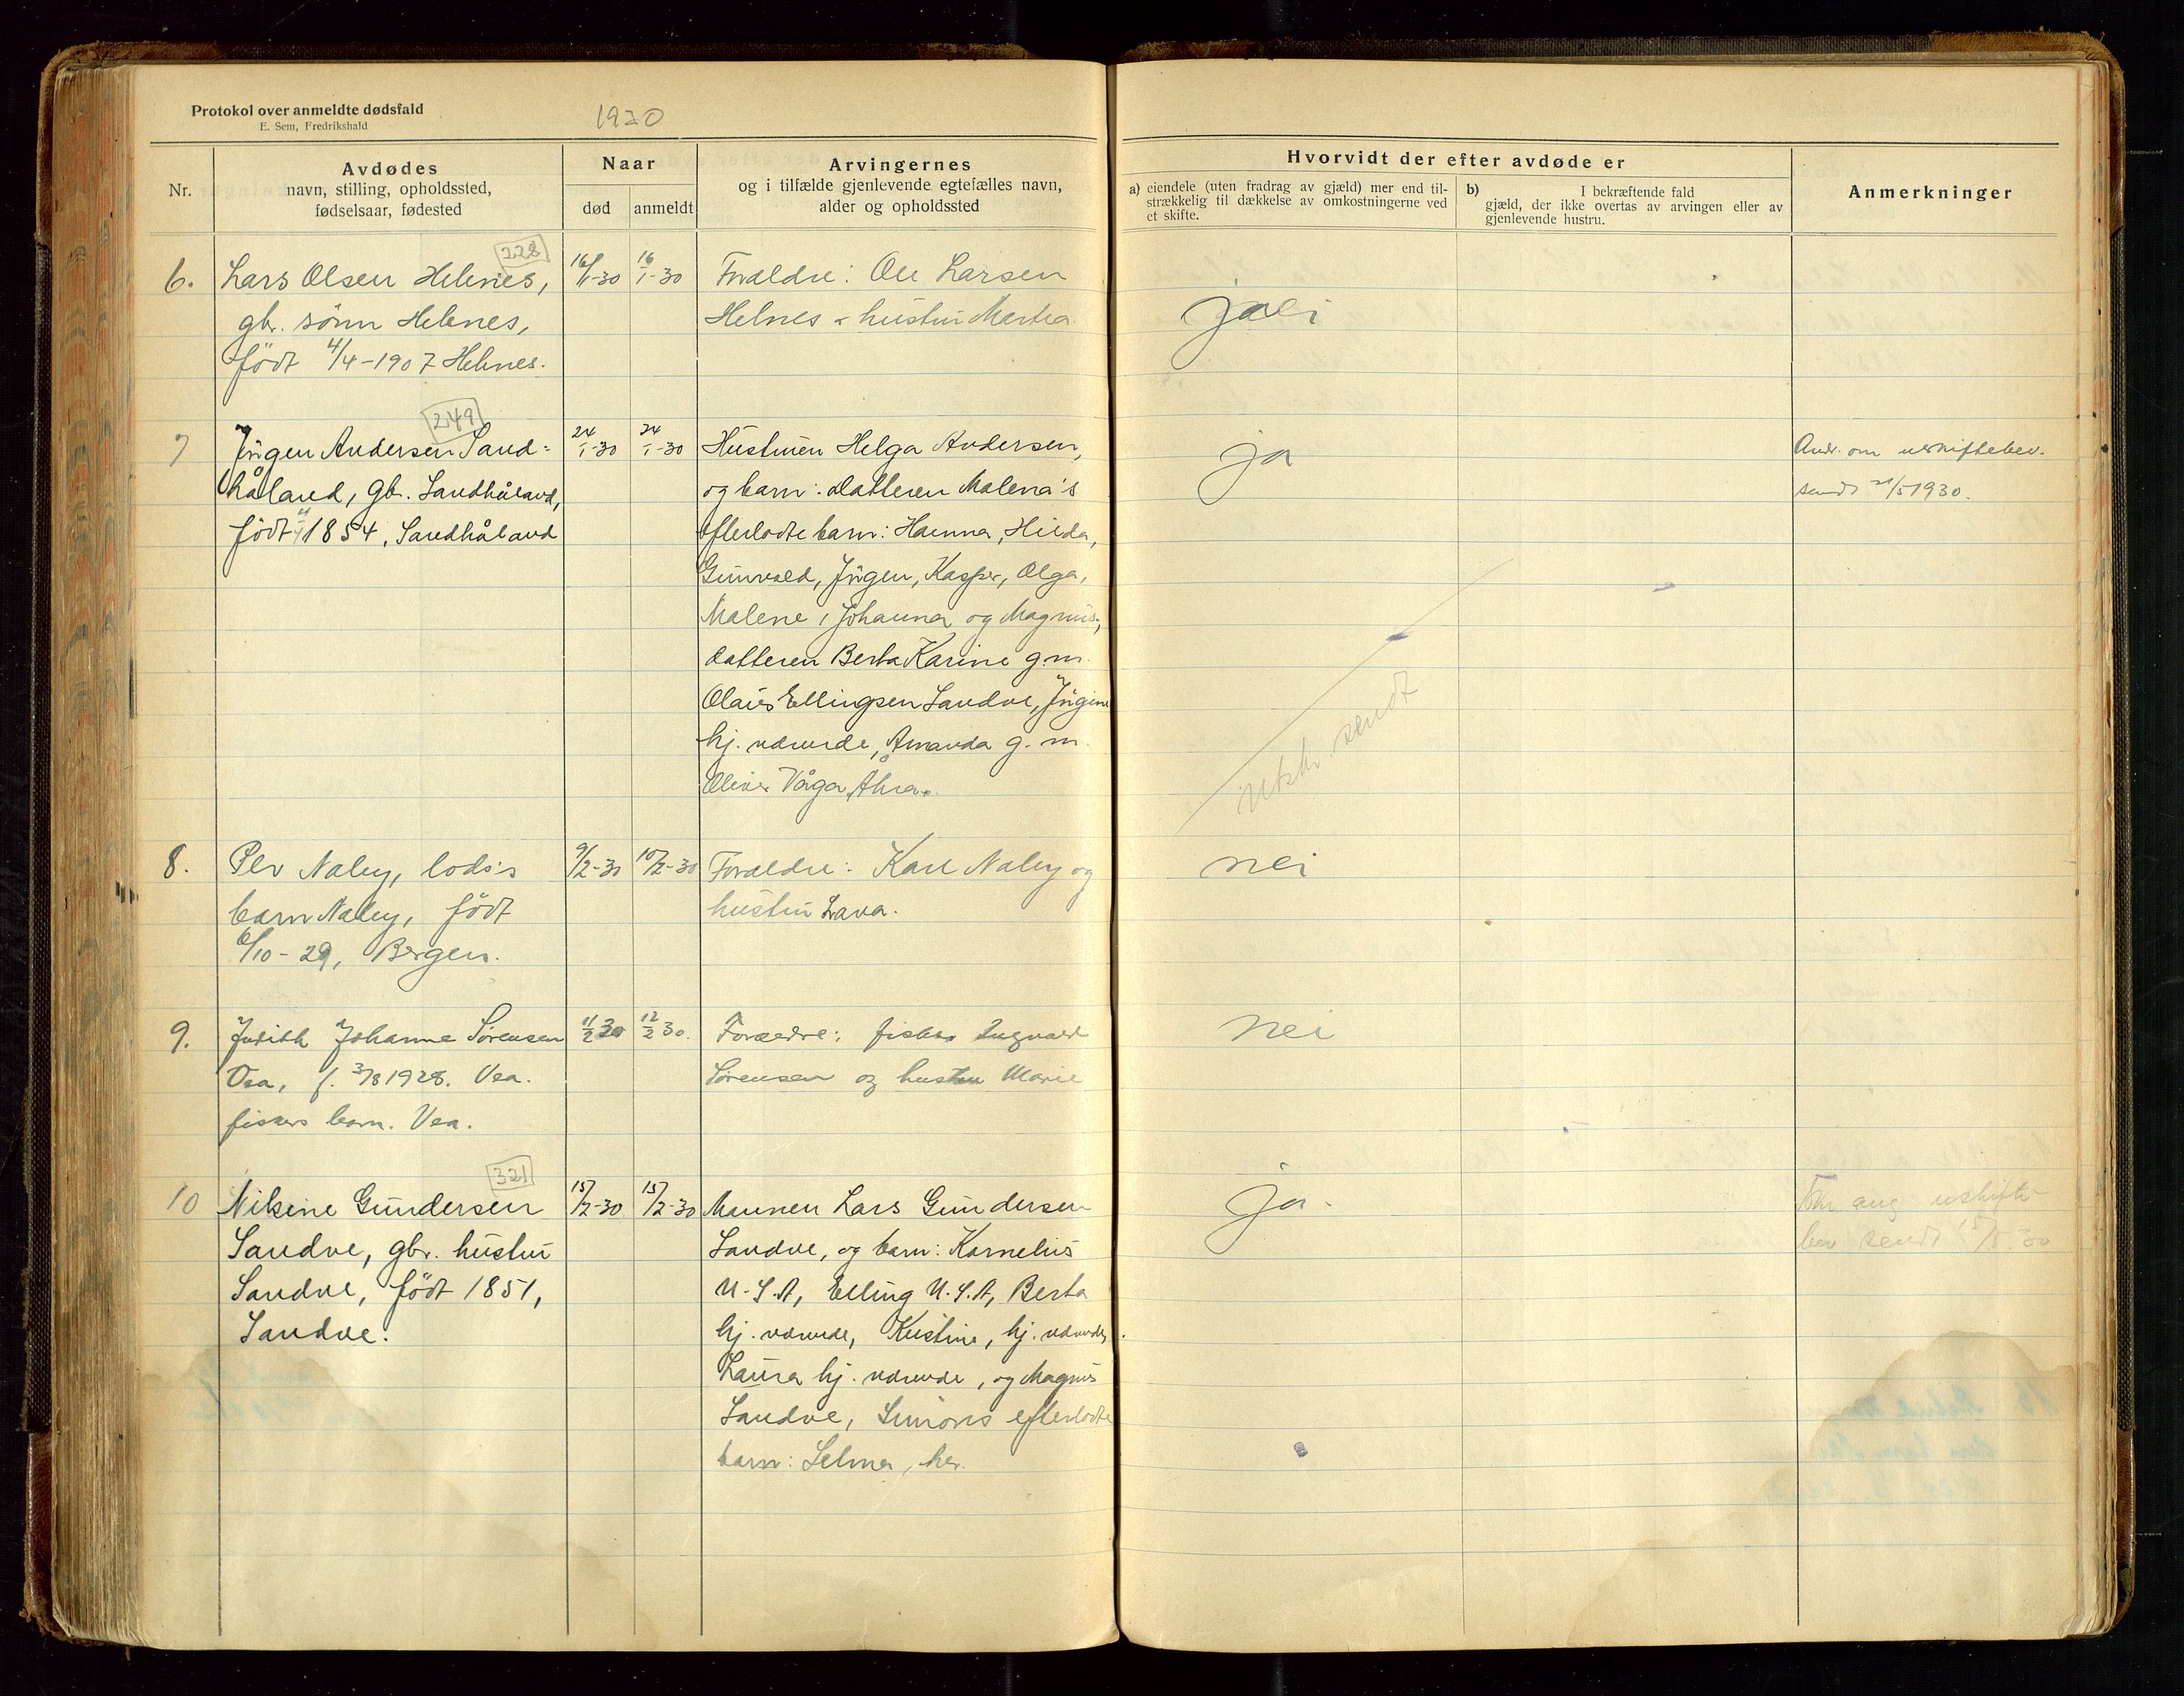 Protokol over anmeldte dødsfald
E. Sem, Fredrikshald
1930
Nr.
Avdødes
navn, stilling, opholdssted,
fødselsaar, fødested
Naar
død
anmeldt
Arvingernes
og i tilfælde gjenlevende egtefælles navn,
alder og opholdssted
Hvorvidt der efter avdøde er
a) eiendele (uten fradrag av gjæld) mer end til-
strækkelig til dækkelse av omkostningerne ved
et skifte.
b) I bekræftende fald
gjæld, der ikke overtas av arvingen eller av
gjenlevende hustru.
Anmerkninger
228
6. Lars Olsen Helnes,
gbr. sønn Helnes,
født 4/4-1907 Helnes.
16/1-30
16/1-30
Foreldre: Ole Larsen
Helnes & hustru Martea
249
7 Jørgen Andersen Sand-
håland, gbr. Sandhåland,
født 1854, Sandhåland
24/1-30
24/1-30
Hustruen Helga Andersen,
og barn: datteren Malena's
efterlodte barn: Hanna, Hilda,
Gunvald, Jørgen, Kasper, Olga,
Malene, Johanna og Magnus,
datteren Berta Karine g.m.
Olaus Ellingsen Sandve, Jørgine
hj. værende, Amanda g. m.
Oliver Våga, Åkra.
ja
utskr. sendt
Andr. om uskiftebev.
sendt 21/5 1930.
8. Per Naley, lods's
barn Naley, født
6/10-29, Bergen.
9/2-30
10/2-30
Foreldre: Karl Naley og
hustru Lava.
nei
9. Judith Johanne Sørensen
Vea, f. 3/8 1928. Vea.
fiskers barn. Vea.
11/2 30
12/2 30.
Foreldre: fisker Ingvald
Sørensen og hustru Marie
nei
321
10 Nilsine Gundersen
Sandve, gbr. hustru
Sandve, født 1851,
Sandve.
15/2-30
15/2-30
Mannen Lars Gundersen
Sandve, og barn: Kornelius
U.S.A, Elling U.S.A, Berta
hj. værende, Kristine, hj. værende,
Laura hj. værende, og Magnus
Sandve, Simons efterlodte
barn: Selma, her.
ja.
ang uskifte-
bev sendt 15/5. 30